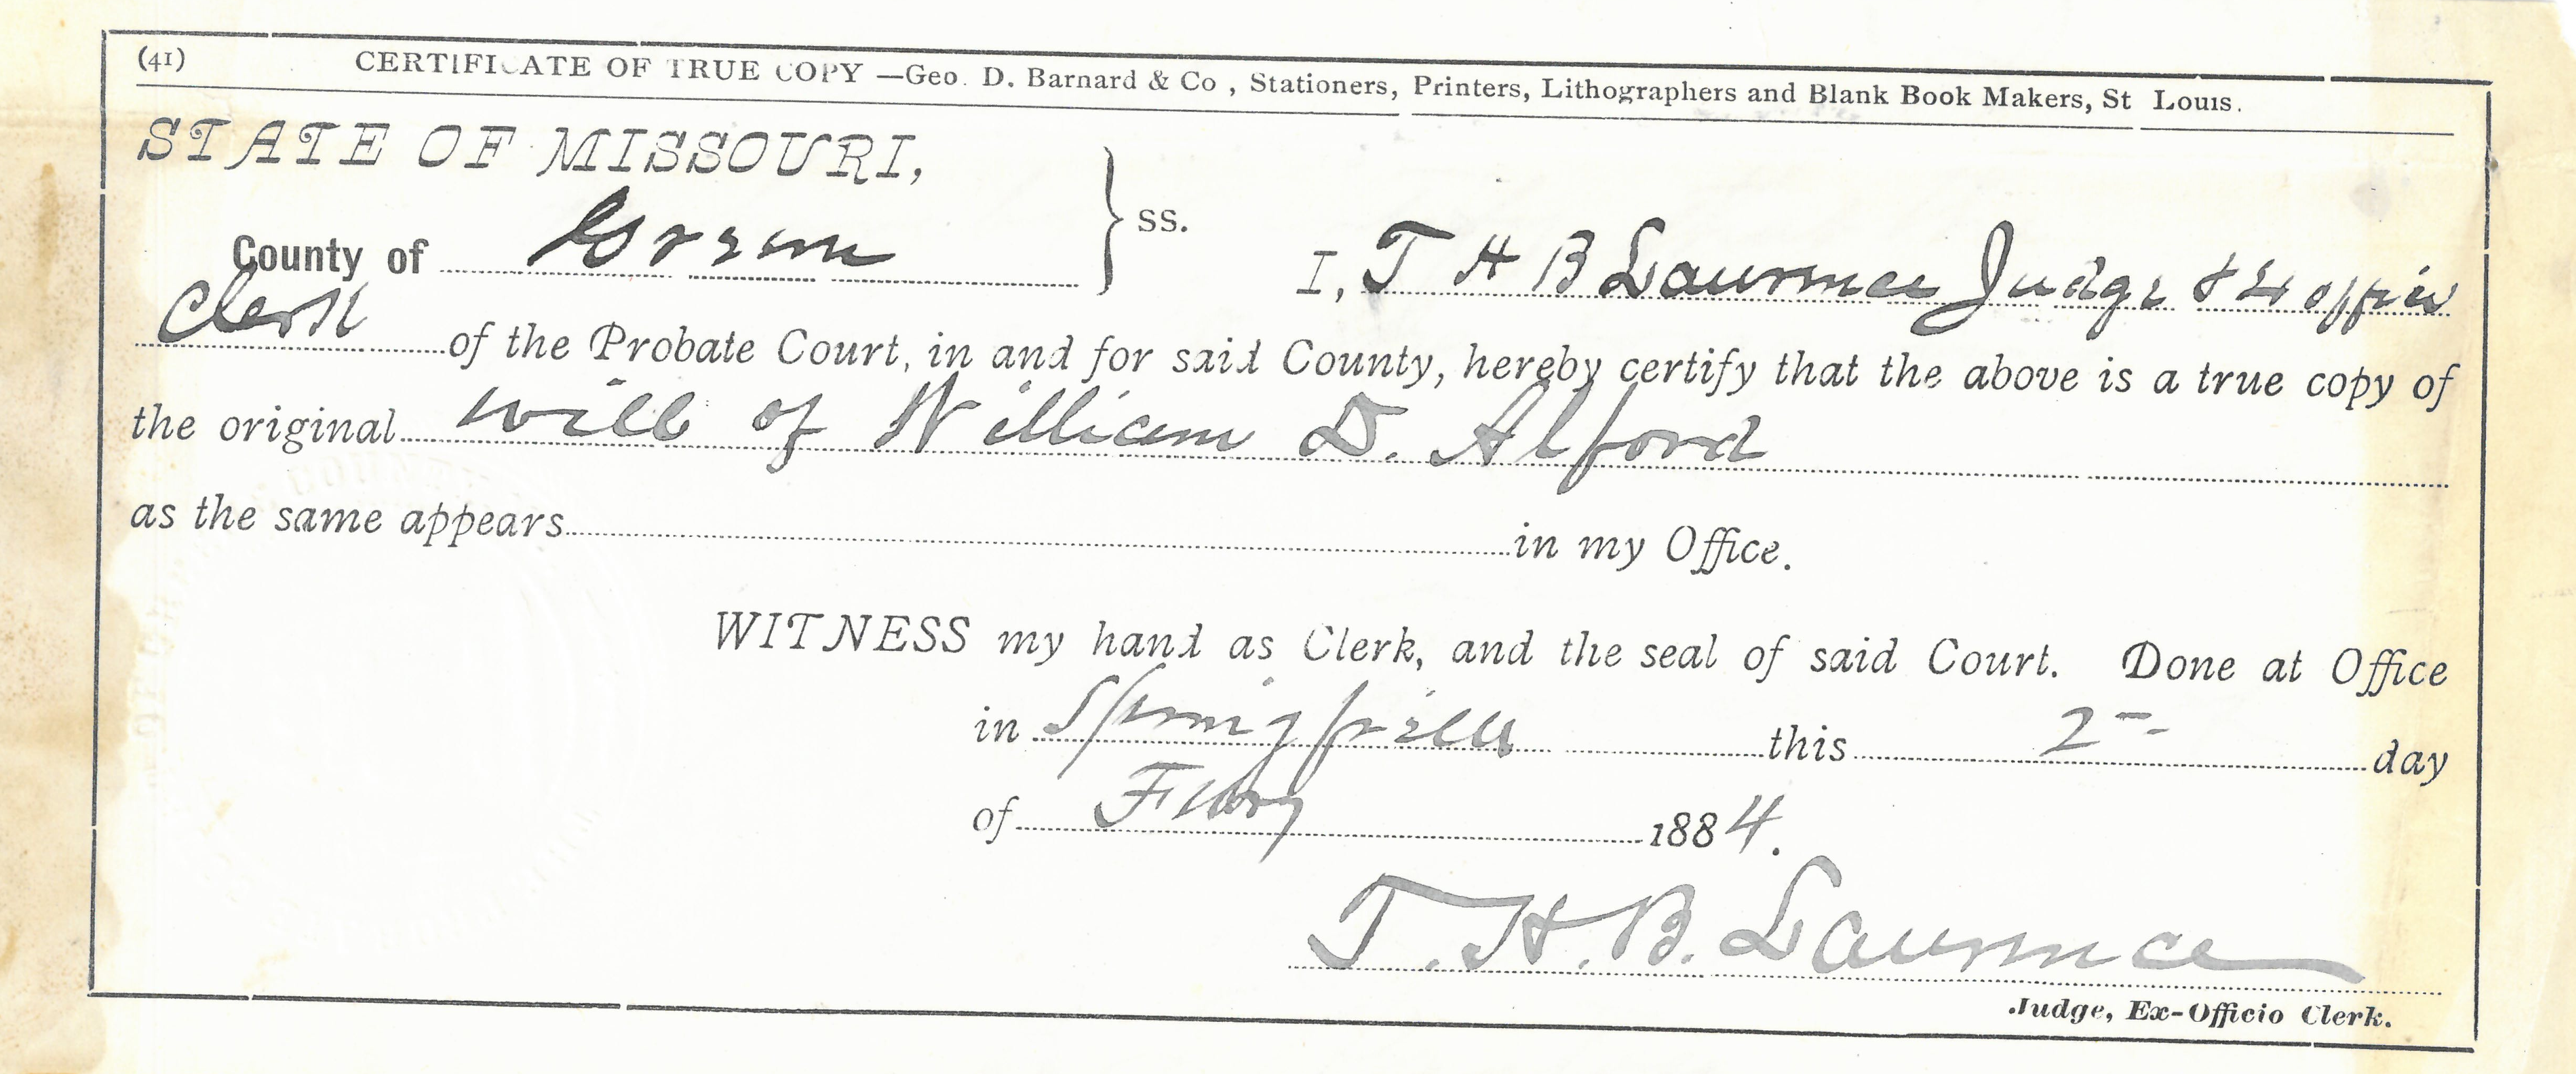 (41) CERTIFICATE OF TRUE COPY —Geo. D. Barnard & Co , Stationers, Printers, Lithographers and Blank Book Makers, St Louis.
STATE OF MISSOURI,
County of Greene } ss. I, T H B Lawrence Judge & Ex officio
Clerk of the Probate Court, in and for said County, hereby certify that the above is a true copy of
the original will of William D. Alford
as the same appears in my Office.
WITNESS my hand as Clerk, and the seal of said Court. Done at Office
in Springfield this 2- day
of Feby 1884.
T. H. B. Lawrence
Judge, Ex-Officio Clerk.